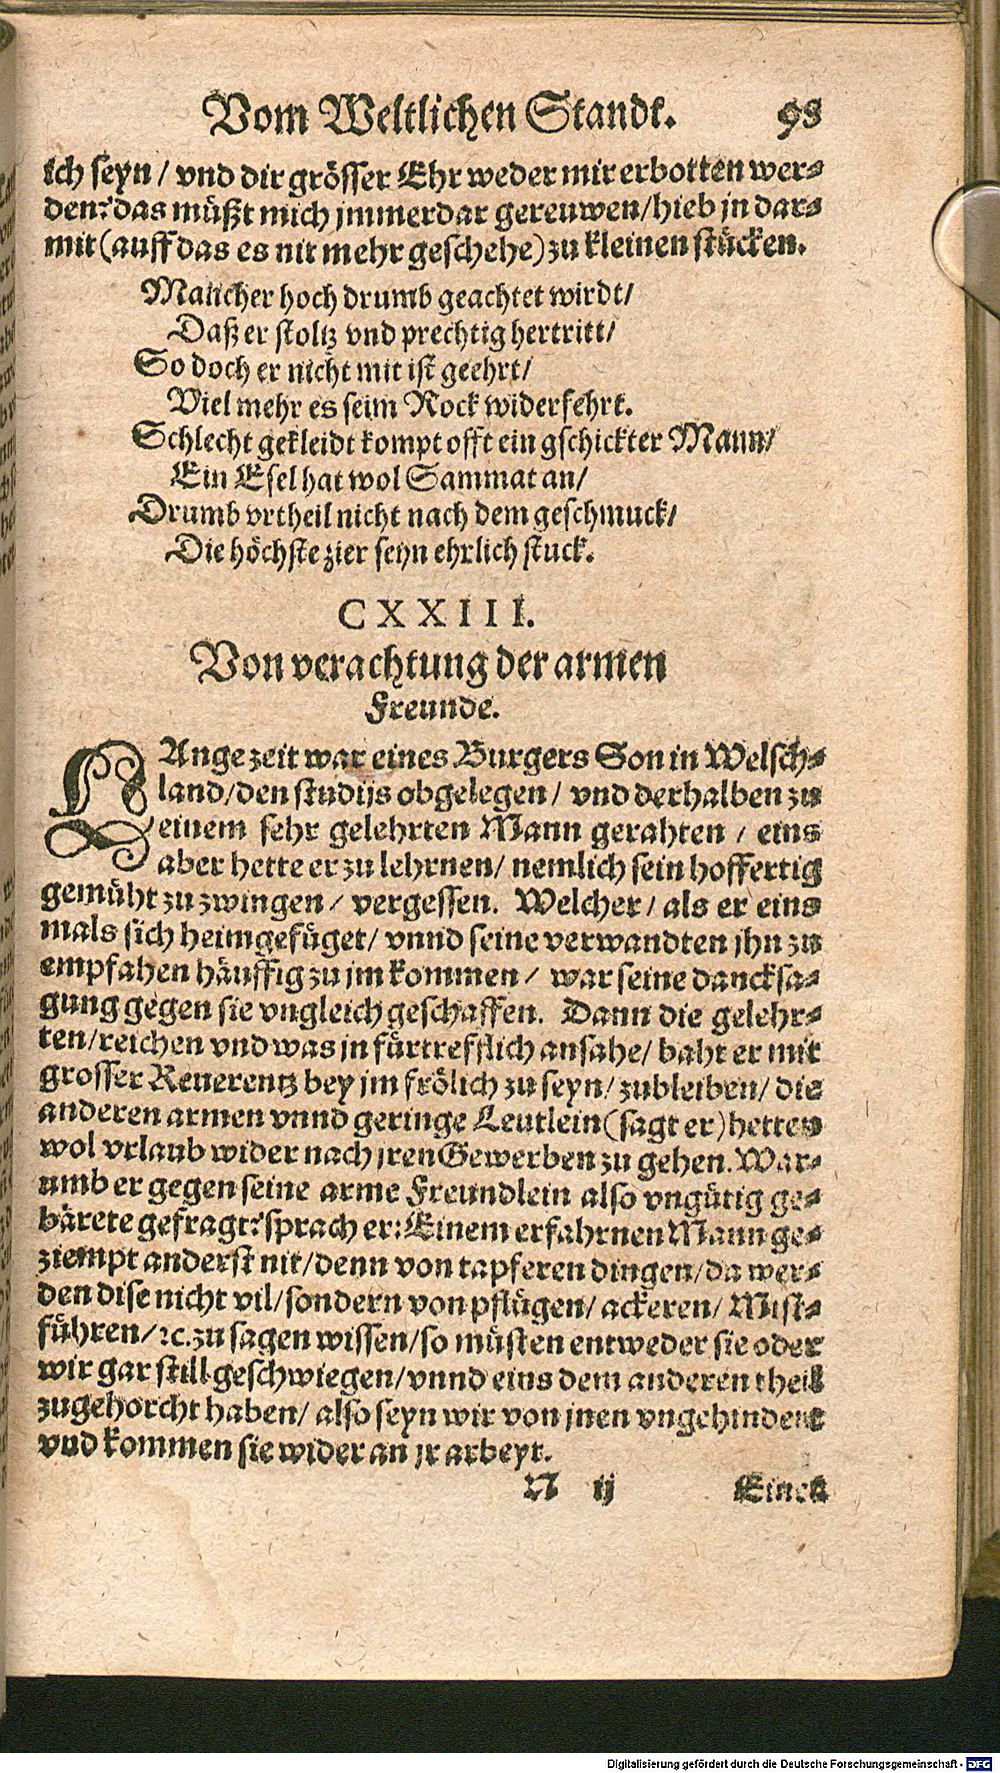 Vom Weltlichen Standt. 98
lich seyn / vnd dir grösser Ehr weder mir erbotten wer⸗
den? das müßt mich jmmerdar gereuwen / hieb jn dar⸗
mit (auff das es nit mehr geschehe) zu kleinen stücken.
Mancher hoch drumb geachtet wirdt /
Daß er stoltz vnd prechtig hertritt /
So doch er nicht mit ist geehrt /
Viel mehr es seim Rock widerfehrt.
Schlecht gekleidt kompt offt ein gschickter Mann /
Ein Esel hat wol Sammat an /
Drumb vrtheil nicht nach dem geschmuck /
Die höchste zier seyn ehrlich stuck.
CXXIII.
Von verachtung der armen
Freunde.
LAnge zeit war eines Burgers Son in Welsch⸗
land / den studijs obgelegen / vnd derhalben zu
einem sehr gelehrten Mann gerahten / eins
aber hette er zu lehrnen / nemlich sein hoffertig
gemüht zu zwingen / vergessen. Welcher / als er eins
mals sich heimgefüget / vnnd seine verwandten jhn zu
empfahen häuffig zu jm kommen / war seine dancksa⸗
gung gegen sie vngleich geschaffen. Dann die gelehr⸗
ten / reichen vnd was jn fürtrefflich ansahe / baht er mit
grosser Reuerentz bey jm frölich zu seyn / zubleiben / die
anderen armen vnnd geringe Leutlein (sagt er) hetten
wol vrlaub wider nach jren Gewerben zu gehen. War⸗
umb er gegen seine arme Freundlein also vngütig ge⸗
bärete gefragt? sprach er: Einem erfahrnen Mann ge⸗
ziempt anderst nit / denn von tapferen dingen / da wer⸗
den dise nicht vil / sondern von pflügen / ackeren / Mist⸗
führen / ꝛc. zu sagen wissen / so müsten entweder sie oder
wir gar still geschwiegen / vnnd eins dem anderen theil
zugehorcht haben / also seyn wir von jnen vngehindert
vnd kommen sie wider an jr arbeyt.
N ij Einer
Digitalisierung gefördert durch die Deutsche Forschungsgemeinschaft - DFG